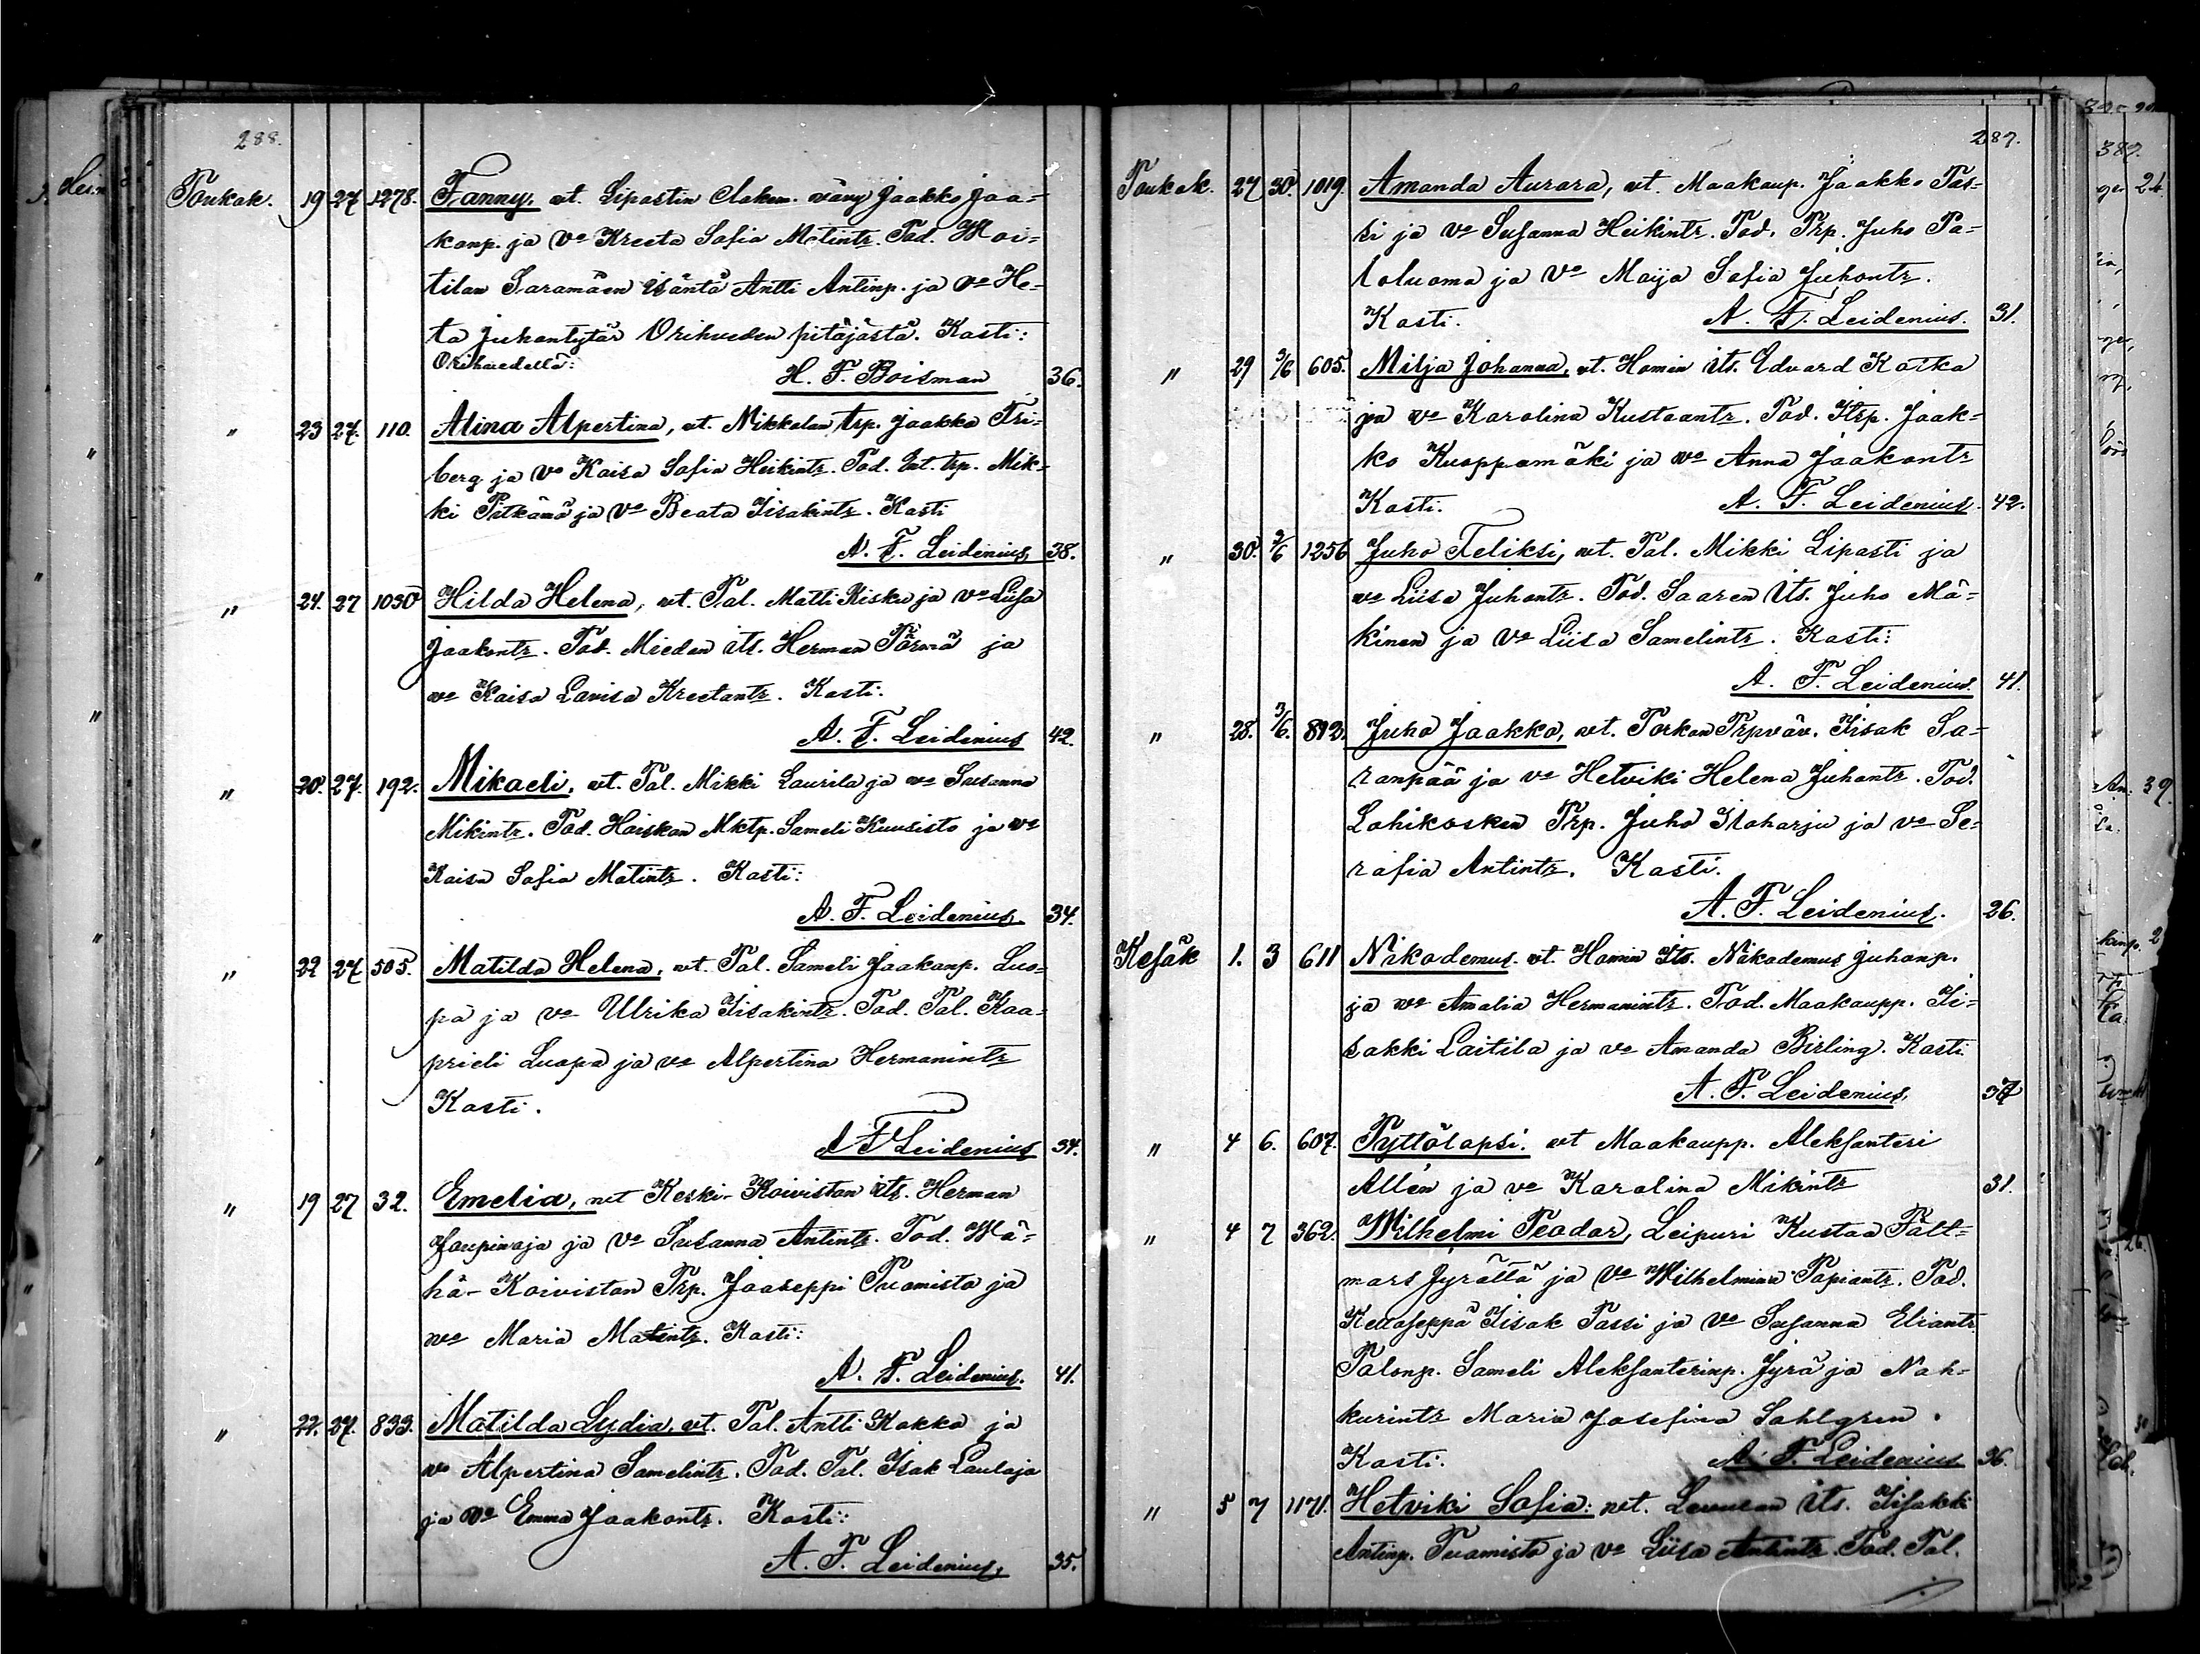 288.
Toukok. 19 27 1278. Fanny, vt. Lipastin Clakom. vävy Jaakko Jaa=
konp. ja Vo Kreeta Sofia Matintr. Tod. Moi=
tilan Saramäen isäntä Antti Antinp. ja Vo He=
ta Juhontytär Orihveden pitäjästä. Kasti:
Orihvedellä: H. F. Boisman 36.
" 23 27. 110. Alina Alpertina, vt. Mikkolan trp. Jaakko Fri=
berg ja Vo Kaisa Sofia Heikintr. Tod. Ent. trp. Mik=
ki Pitkämä ja Vo Beata Iisakintr. Kasti
A. F. Leidenius 38.
" 24. 27 1030 Hilda Helena, vt. Tal. Matti Kisku ja Vo Liisa
Jaakontr. Tod. Mieden its. Herman Törmä ja
vo Kaisa Lovisa Kreetantr. Kasti:
A. F. Leidenius 42.
" 20. 27. 192. Mikaeli, vt. Tal. Mikki Laurila ja vo Susanna
Mikintr. Tod. Hoiskan Mktp. Sameli Kuusisto ja vo
Kaisa Sofia Matintr. Kasti:
A. F. Leidenius. 34.
" 22 27 505. Matilda Helena, vt. Tal. Sameli Jaakonp. Luo=
pa ja vo Ulrika Iisakintr. Tod. Tal. Kaa=
prieli Luopa ja vo Alpertina Hermanintr
Kasti.
A F Leidenius 34.
" 19 27 32. Emelia, vt Keski-Koiviston its. Herman
Jaupinoja ja Vo Susanna Antintr. Tod. Wä=
hä-Koiviston Trp. Jooseppi Tuomisto ja
vo Maria Matintr. Kasti:
A. F. Leidenius. 41.
" 22. 27. 833. Matilda Lydia, vt. Tal. Antti Kokko ja
vo Alpertina Samelintr. Tod. Tal. Isak Laulaja
ja Vo Emma Jaakontr. Kasti:
A. F. Leidenius, 35.
287.
Toukok. 27 30. 1019. Amanda Aurora, vt. Maakaup. Jaakko Pas=
si ja Vo Susanna Heikintr. Tod. Trp. Juho Pa=
loluoma ja Vo Maija Sofia Juhontr.
Kasti. A. F. Leidenius. 31.
" 29 3/6 605. Milja Johanna, vt. Homin Its. Edvard Koska
ja vo Karolina Kustaantr. Tod. Itrp. Jaak=
ko Kuoppamäki ja vo Anna Jaakontr
Kasti. A. F. Leidenius. 42.
" 30. 3/6 1256 Juho Feliksi, vt. Tal. Mikki Lipasti ja
vo Liisa Juhontr. Tod. Saaren Its. Juho Mä=
kinen ja Vo Liisa Samelintr. Kasti:
A. F. Leidenius. 41.
" 28. 3/6. 893. Juho Jaakko, vt. Torkon Trpväv. Iisak Sa=
ranpää ja vo Hetviki Helena Juhontr. Tod.
Lohikosken Trp. Juho Iloharju ja vo Se=
rafia Antintr. Kasti.
A. F. Leidenius. 26.
Kesäk 1. 3 611 Nikodemus. vt. Homin Its. Nikodemus Juhonp.
ja vo Amalia Hermanintr. Tod. Maakaupp. Ii=
sakki Laitila ja vo Amanda Birling. Kasti
A. F. Leidenius, 37
" 4 6. 607. Tyttölapsi. vt Maakaupp. Aleksanteri
Allén ja vo Karolina Mikintr 31.
" 4 7 362. Wilhelmi Teodor, Leipuri Kustaa Fält=
mars Jyrältä ja Vo Wilhelmina Topiantr. Tod.
Kelloseppä Iisak Passi ja Vo Susanna Eliantr
Talonp. Sameli Aleksanterinp. Jyrä ja Nah=
kurintr Maria Josefina Sahlgren.
Kasti. A. F. Leidenius 36.
" 5 7 1171. Hetviki Sofia: vt. Its. Iisakki
Antinp. Tuomisto ja Vo Liisa Antintr. Tod. Tal.